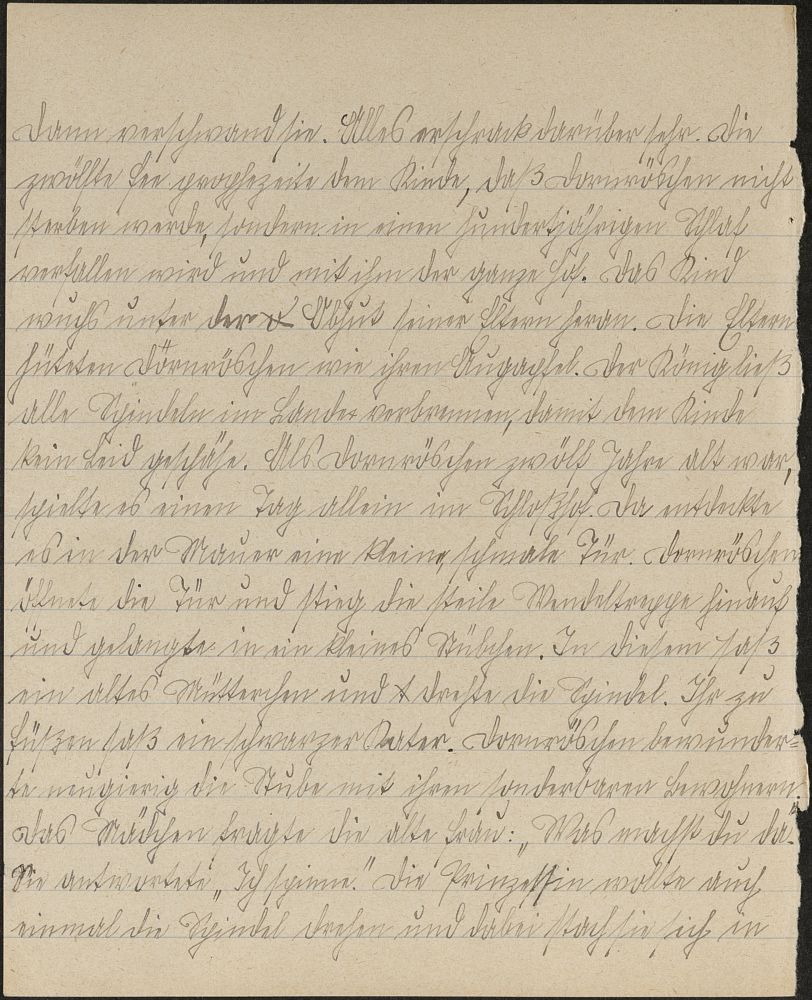 Dann verschwand sie. Alles erschrack darüber sehr. Die
zwölfte Fee prophezeite dem Kinde, daß Dornröschen nicht
sterben werde, sondern in einen hundertjährigen Schlaf
verfallen wird und mit ihm der ganze Hof. Das Kind
wuchs unter der Obhut seiner Eltern heran. Die Eltern
hüteten Dörnröschen wie ihren Augapfel. Der König ließ
alle Spindeln im Lande verbrennen, damit dem Kinde
kein Leid geschähe. Als Dornröschen zwölf Jahre alt war,
spielte es einen Tag allein im Schloßhof. Da entdeckte
es in der Mauer eine kleine, schmale Tür. Dornröschen
öffnete die Tür und stieg die steile Wendeltreppe hinauf
und gelangte in ein kleines Stübchen. In diesem saß
ein altes Mütterchen und drehte die Spindel. Ihr zu
Füßen saß ein schwarzer Kater. Dornröschen bewunder=
te neugierig die Stube mit ihren sonderbaren Bewohnern.
Das Mädchen fragte die alte Frau: „Was machst du da."
Sie antwortete „Ich spinne." Die Prinzessin wollte auch
einmal die Spindel drehen und dabei stach sie sich in